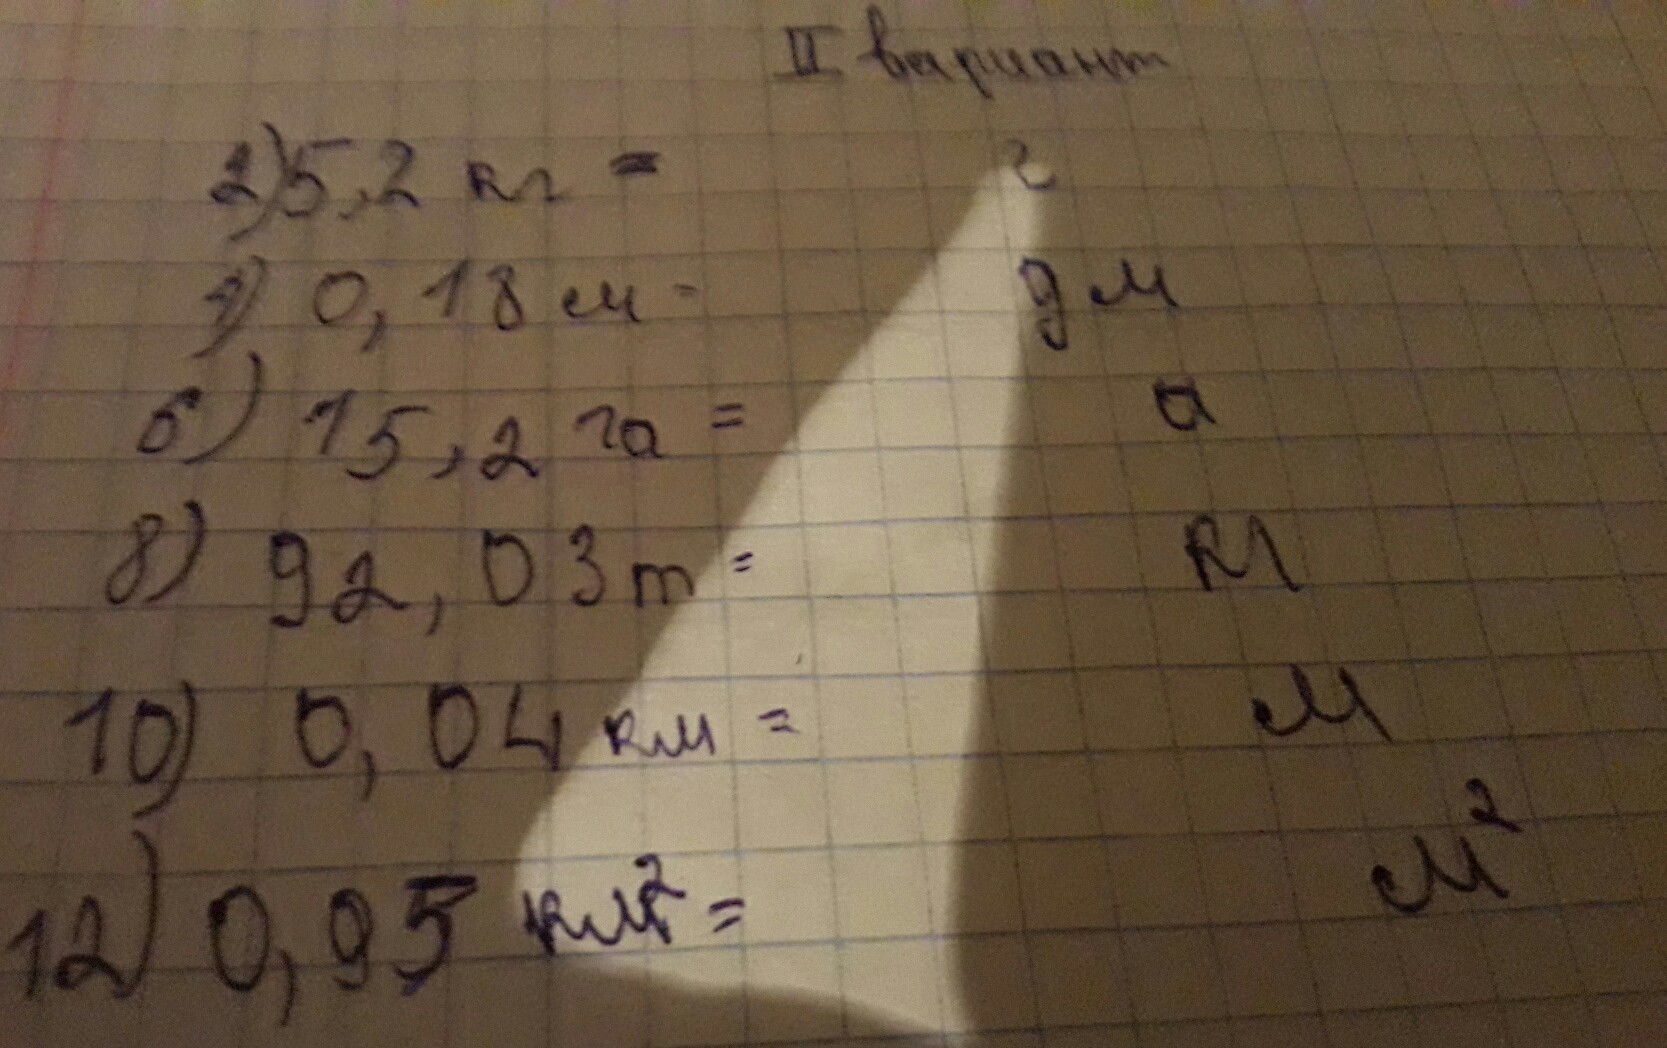 II вариант
2) 5,2 кг = г
4) 0,18 м = дм
6) 15,2 га = а
8) 92,03 т = кг
10) 0,04 км = м
12) 0,95 км² = м²